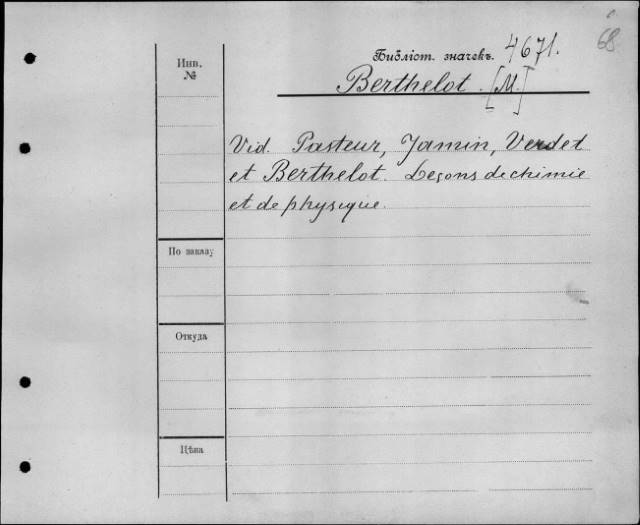 68
Библіот. значекъ. 4671.
Berthelot. [M.]
Инв.
№
Vid. Pasteur, Jamin, Verdet
et Berthelot. Leçons de chimie
et de physique.
По заказу
Откуда
Цѣна